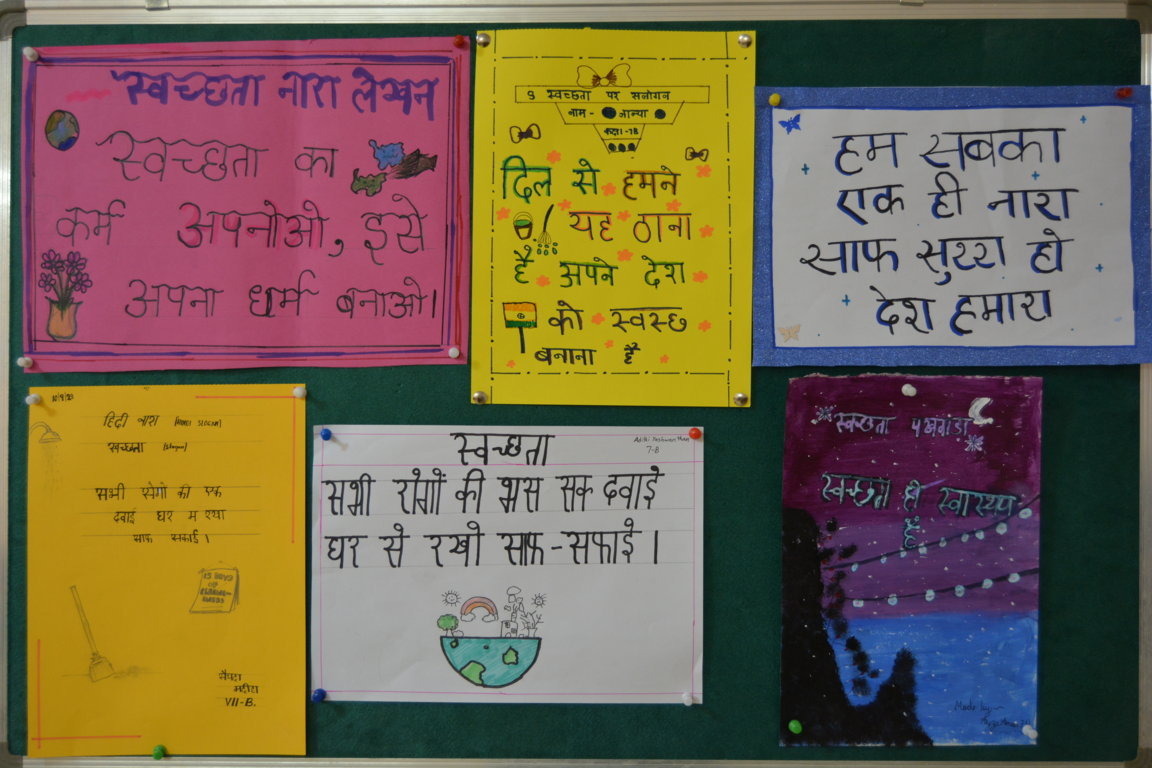 स्वच्छता नारा लेखन
स्वच्छता का
कर्म अपनोओ, इसे
अपना धर्म बनाओ।
स्वच्छता पर सलोगन
नाम - जान्या
कक्षा-7B
दिल से हमने
यह ठाना
है अपने देश
को स्वस्छ
बनाना है
हम सबका
एक ही नारा
साफ सुथरा हो
देश हमारा
10/9/23
हिंदी नारा (HINDI SLOGAN)
स्वच्छता (Slogan)
सभी रोगो की एक
दवाई घर म रखा
साफ सफाई।
15 DAYS
OF
VII-B.
स्वच्छता
7-B
सभी रोगों की भस सक दवाई
घर से रखो साफ-सफाई।
स्वच्छता पखवाडा
स्वच्छता ही स्वास्थ्य
है
Made by